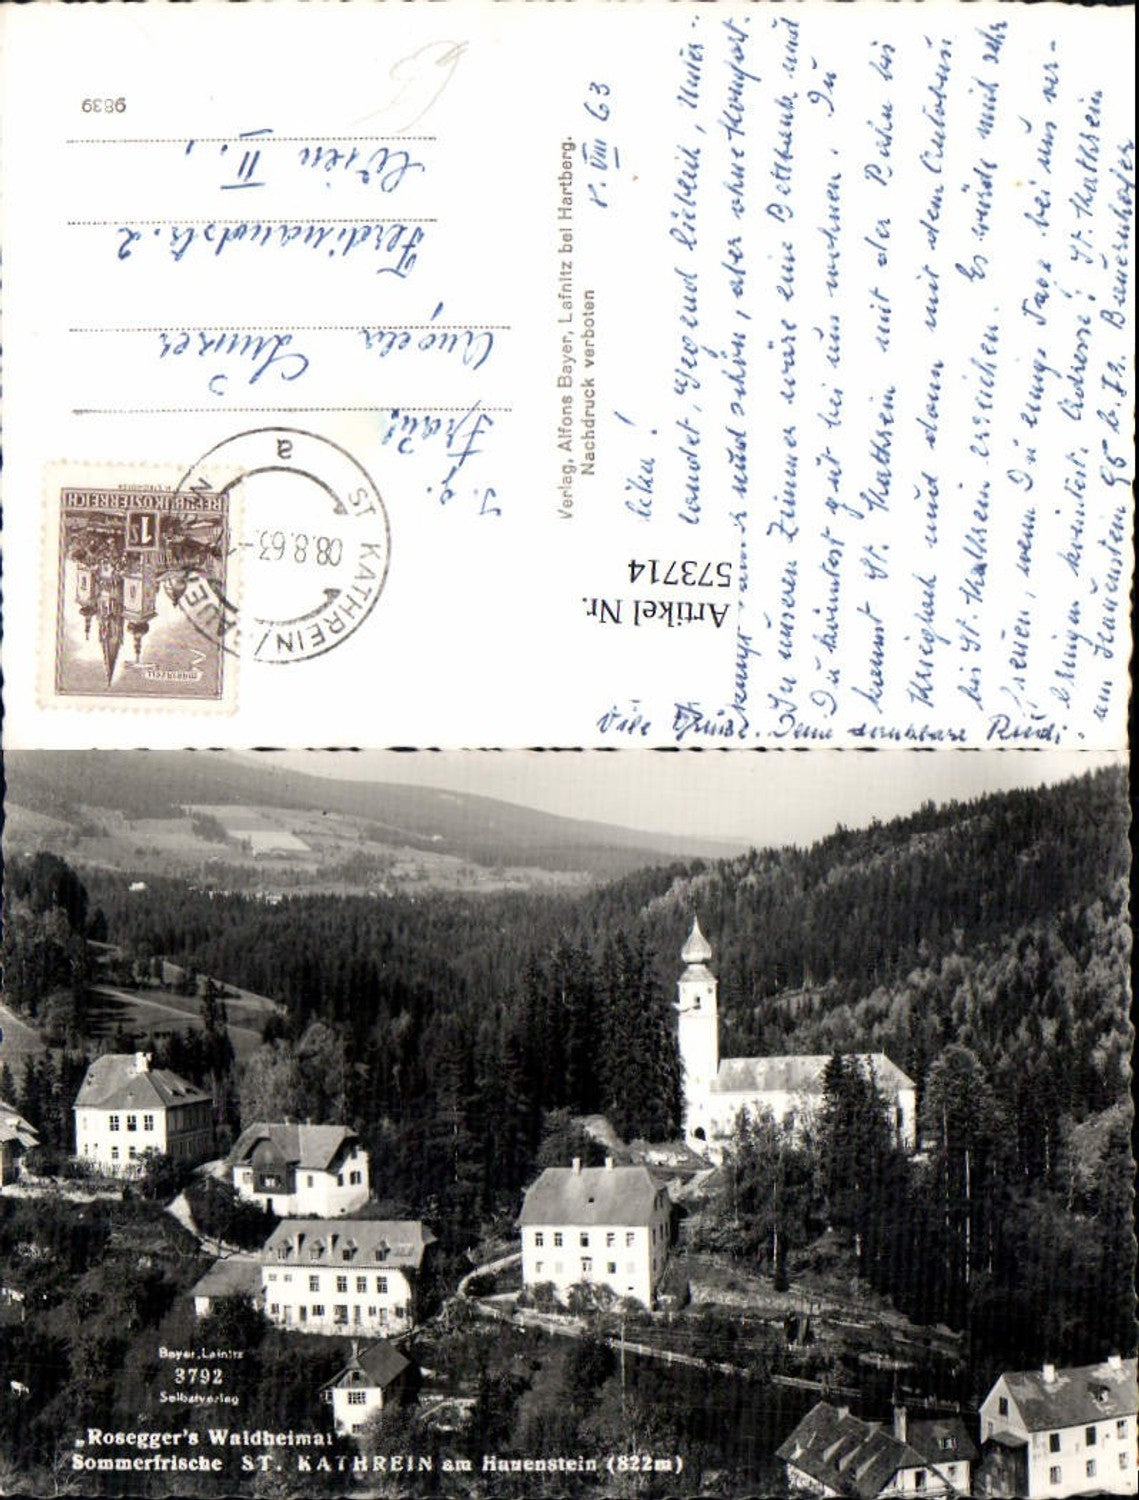 9839
Wien II.,
Ferdinandstr. 2
Angela
Frau
S. g.
MARIAZELL
1S
REPUBLIK ÖSTERREICH
ST. KATHREIN/HAUENSTEIN
08.8.63
a
Verlag, Alfons Bayer, Lafnitz bei Hartberg.
Nachdruck verboten
Artikel Nr.
573714
8. VIII 63
landet, Gegend lieblich, Unter-
und schön, aber ohne Komfort.
In unseren Zimmer wäre eine Bettbank und
Du könntest gut bei uns wohnen. Du
kannst St. Kathrein mit der Bahn bis
Krieglach und dann mit dem Autobus
bis St. Kathrein erreichen. Es würde mich sehr
freuen, wenn Du einige Tage bei uns ver-
bringen könntest. Adresse: St. Kathrein
am Hauenstein 95 b. Fr. Bauernhofer
Viele Grüße. Deine dankbare Rudi.
Bayer, Lafnitz
3792
Selbstverlag
„Rosegger's Waldheimat"
Sommerfrische ST. KATHREIN am Hauenstein (822m)